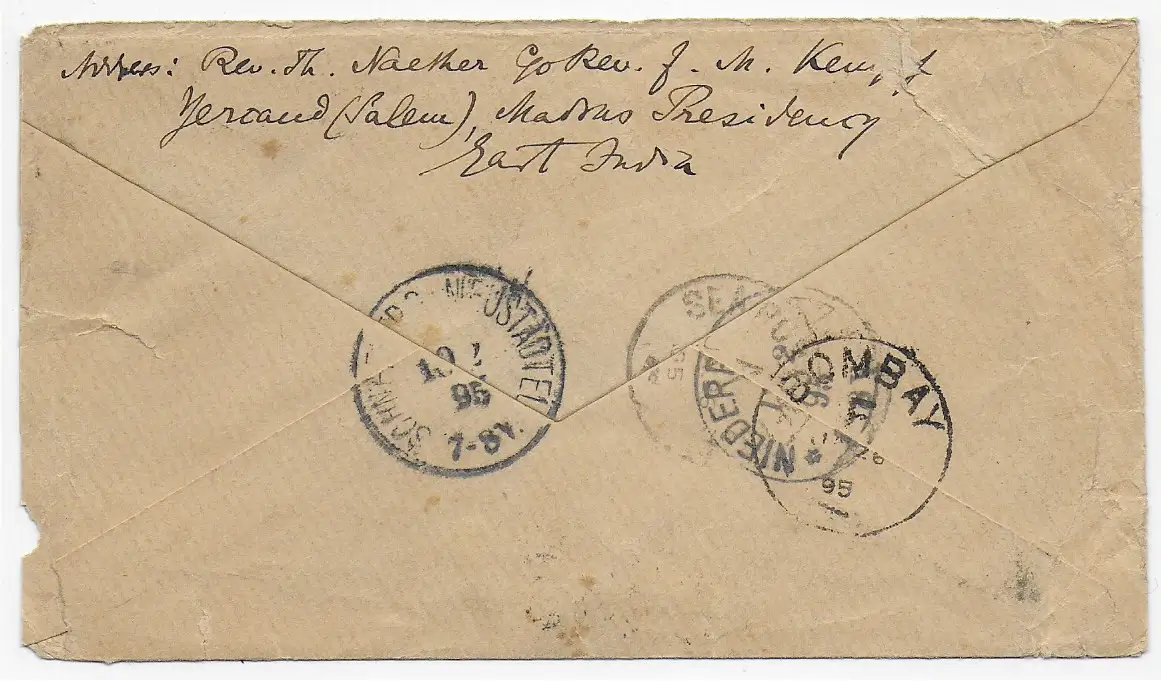 Address: Rev. Th. Naether c/o Rev. J. M. Kempf
Yercaud (Salem), Madras Presidency
East India
NEUSTÄDTEL
10 7
95
7-8V.
SEA POST
95
NIEDER
BOMBAY
95